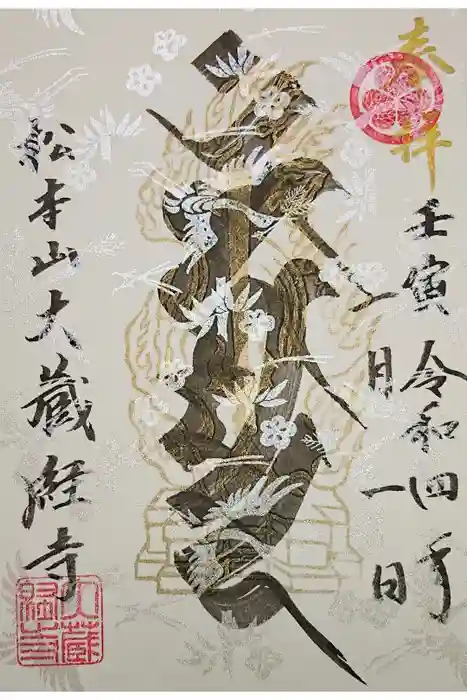 奉拝
壬寅 令和四年
一月一日
松本山大蔵経寺
大蔵経寺